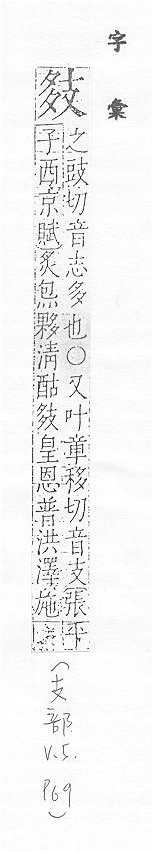 字彙
㩼
之豉切音志多也○又叶章移切音支張平
子西京賦炙炰夥清酤㩼皇恩普洪澤施
(支部 V.5. P69)